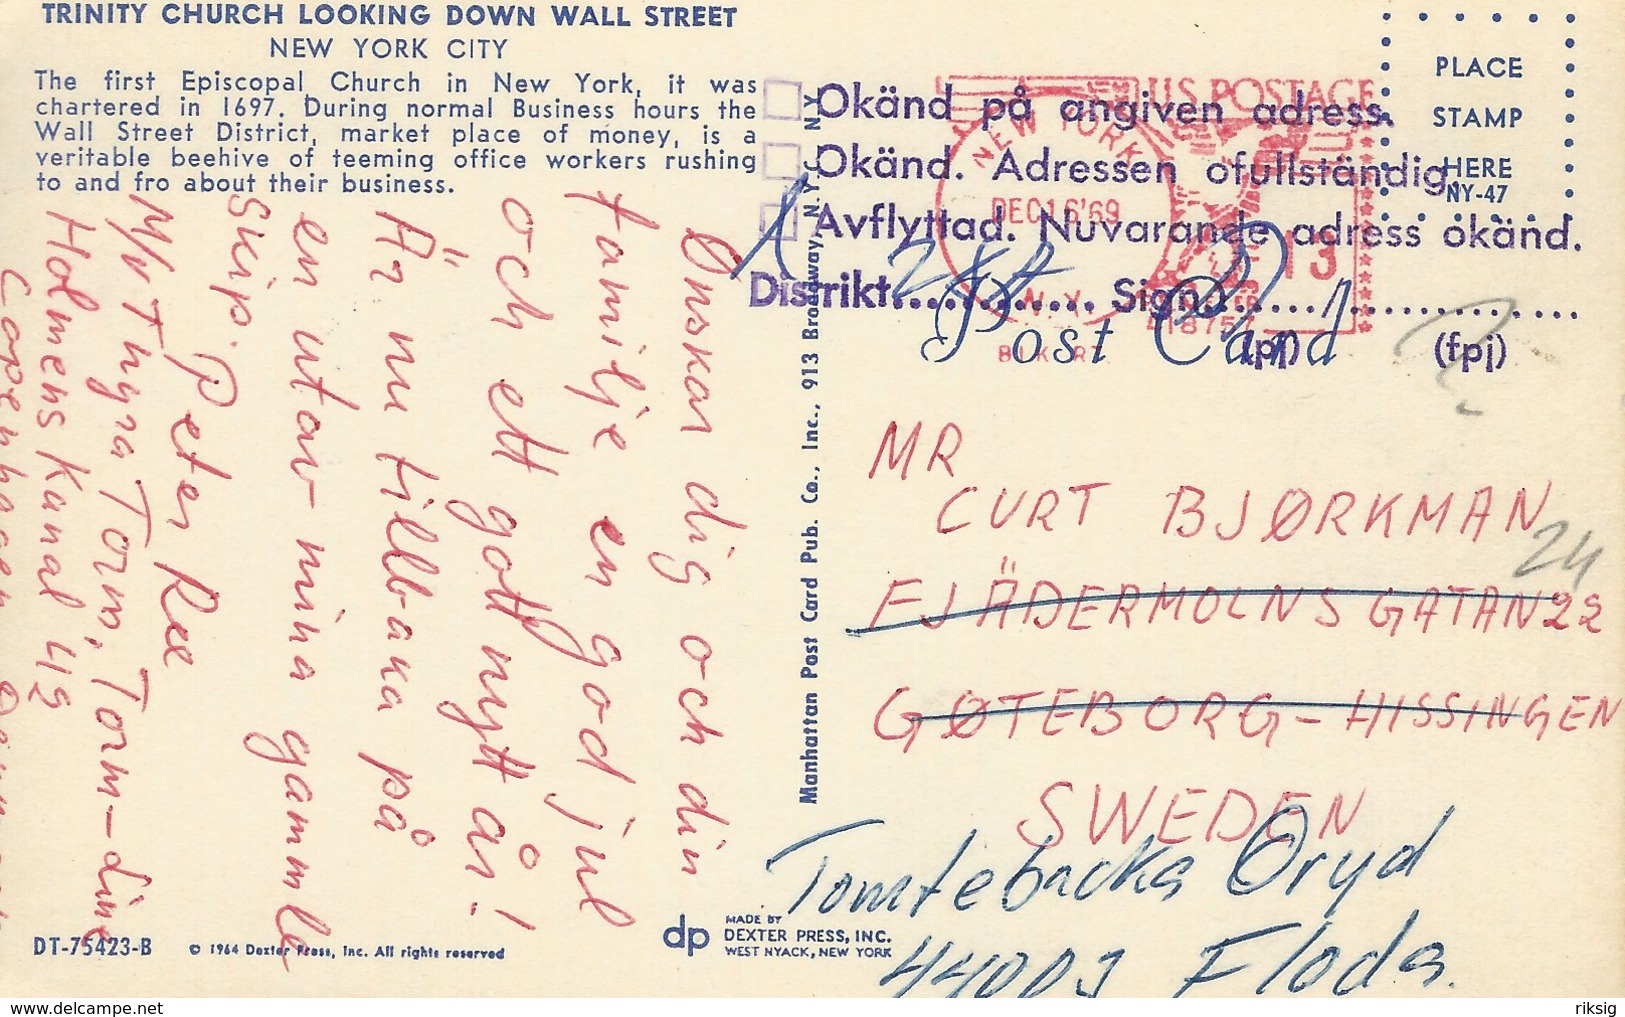 TRINITY CHURCH LOOKING DOWN WALL STREET
NEW YORK CITY
The first Episcopal Church in New York, it was
chartered in 1697. During normal Business hours the
Wall Street District, market place of money, is a
veritable beehive of teeming office workers rushing
to and fro about their business.
Ønskar dig och din
familje en god jul
och ett gott nytt år!
Är nu tilbaka på
en utav mina gammle
Skip. Peter Ree
M/v Thyra Torm, Torm-Line
Holmens Kanal 49
Copenhagen
DT-75423-B
© 1964 Dexter Press, Inc. All rights reserved
dp
MADE BY
DEXTER PRESS, INC.
WEST NYACK, NEW YORK
Manhattan Post Card Pub. Co., Inc., 913 Broadway, N.Y.C., N.Y.
PLACE
STAMP
HERE
NY-47
U.S. POSTAGE
NEW YORK
DEC16'69
N.Y.
13
Okänd på angiven adress.
Okänd. Adressen ofullständig.
Avflyttad. Nuvarande adress okänd.
Distrikt............ Sign.
(pj) (fpj)
Post Card
MR
CURT BJØRKMAN
24
FJÄDERMOLNSGATAN 22
GØTEBORG-HISSINGEN
SWEDEN
Tomtebacka Öryd
44003 Floda.
riksig